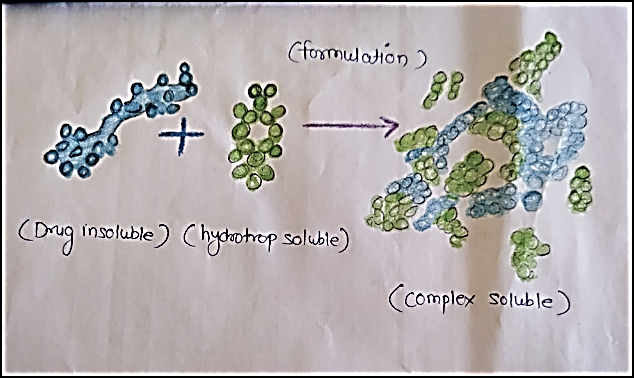 (formulation)
+
(Drug insoluble) (hydrotrop soluble)
(complex soluble)